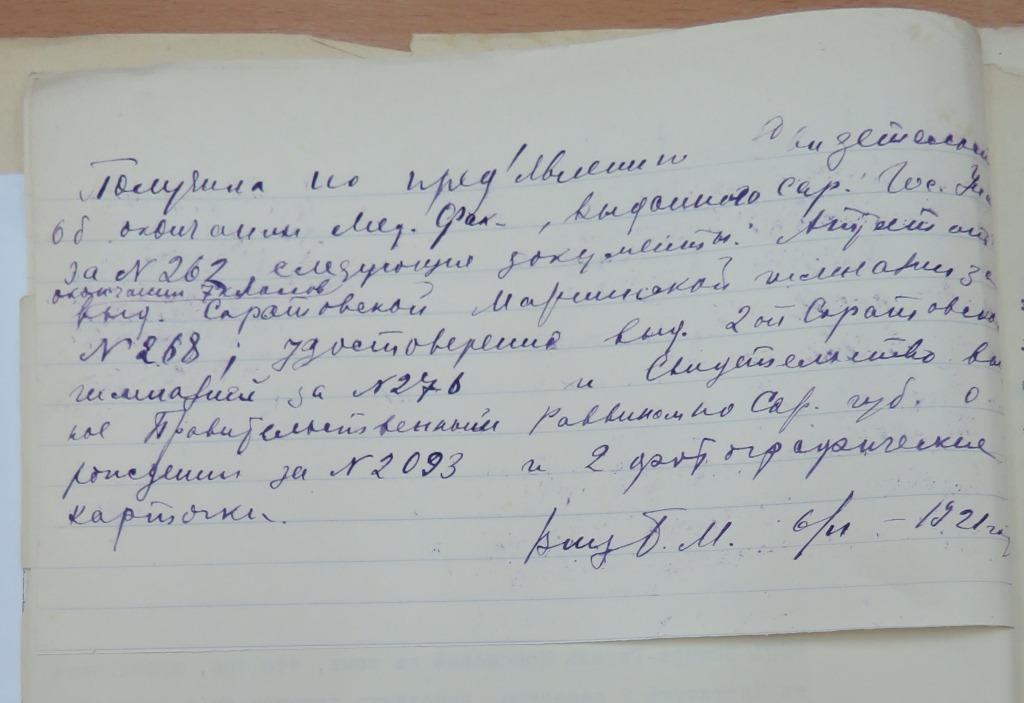 Получила по пред'явлении Свидетельства
об окончании Мед. Фак., выданного Сар. Гос. Ун.
за N 262 следующие документы: Аттестат
окончании 7 классов
выд. Саратовской Мариинской гимназии за
N 268; удостоверение выд. 2ой Саратовской
гимназией за N 276 и Свидетельство выдан
ное Правительственным Раввином по Сар. губ. о
рождении за N 2093 и 2 фотографические
карточки.
Б. М. 6/II – 1921 г.